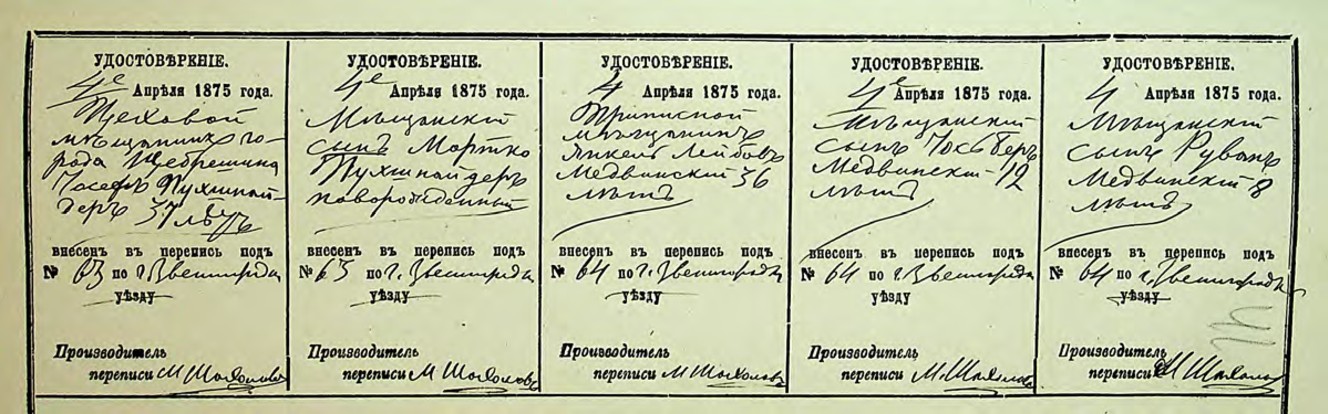 УДОСТОВѢРЕНІЕ.
4е Апрѣля 1875 года.
Цеховой
мѣщанинъ го-
рода Щебрешина
Іосефъ Пухшнай-
деръ 37 лѣтъ
внесенъ въ перепись подъ
№ 63 по г. Звенигродкѣ
уѣзду
Производитель
переписи М
УДОСТОВѢРЕНІЕ.
4е Апрѣля 1875 года.
Мѣщанскій
сынъ Мортко
Пухшнайдеръ
новорожденный
внесенъ въ перепись подъ
№ 63 по г. Звенигродкѣ
уѣзду
Производитель
переписи М
УДОСТОВѢРЕНІЕ.
4 Апрѣля 1875 года.
Приписной
мѣщанинъ
Янкель Лейбовъ
Медвинскій 36
лѣтъ
внесенъ въ перепись подъ
№ 64 по г. Звенигородкѣ
уѣзду
Производитель
переписи М
УДОСТОВѢРЕНІЕ.
4е Апрѣля 1875 года.
Мѣщанскій
сынъ Беръ
Медвинскій 12
лѣтъ
внесенъ въ перепись подъ
№ 64 по г. Звенигродкѣ
уѣзду
Производитель
переписи М.
УДОСТОВѢРЕНІЕ.
4 Апрѣля 1875 года.
Мѣщанскій
сынъ Рувинъ
Медвинскій 8
лѣтъ
внесенъ въ перепись подъ
№ 64 по г. Звенигородкѣ
уѣзду
Производитель
переписи М